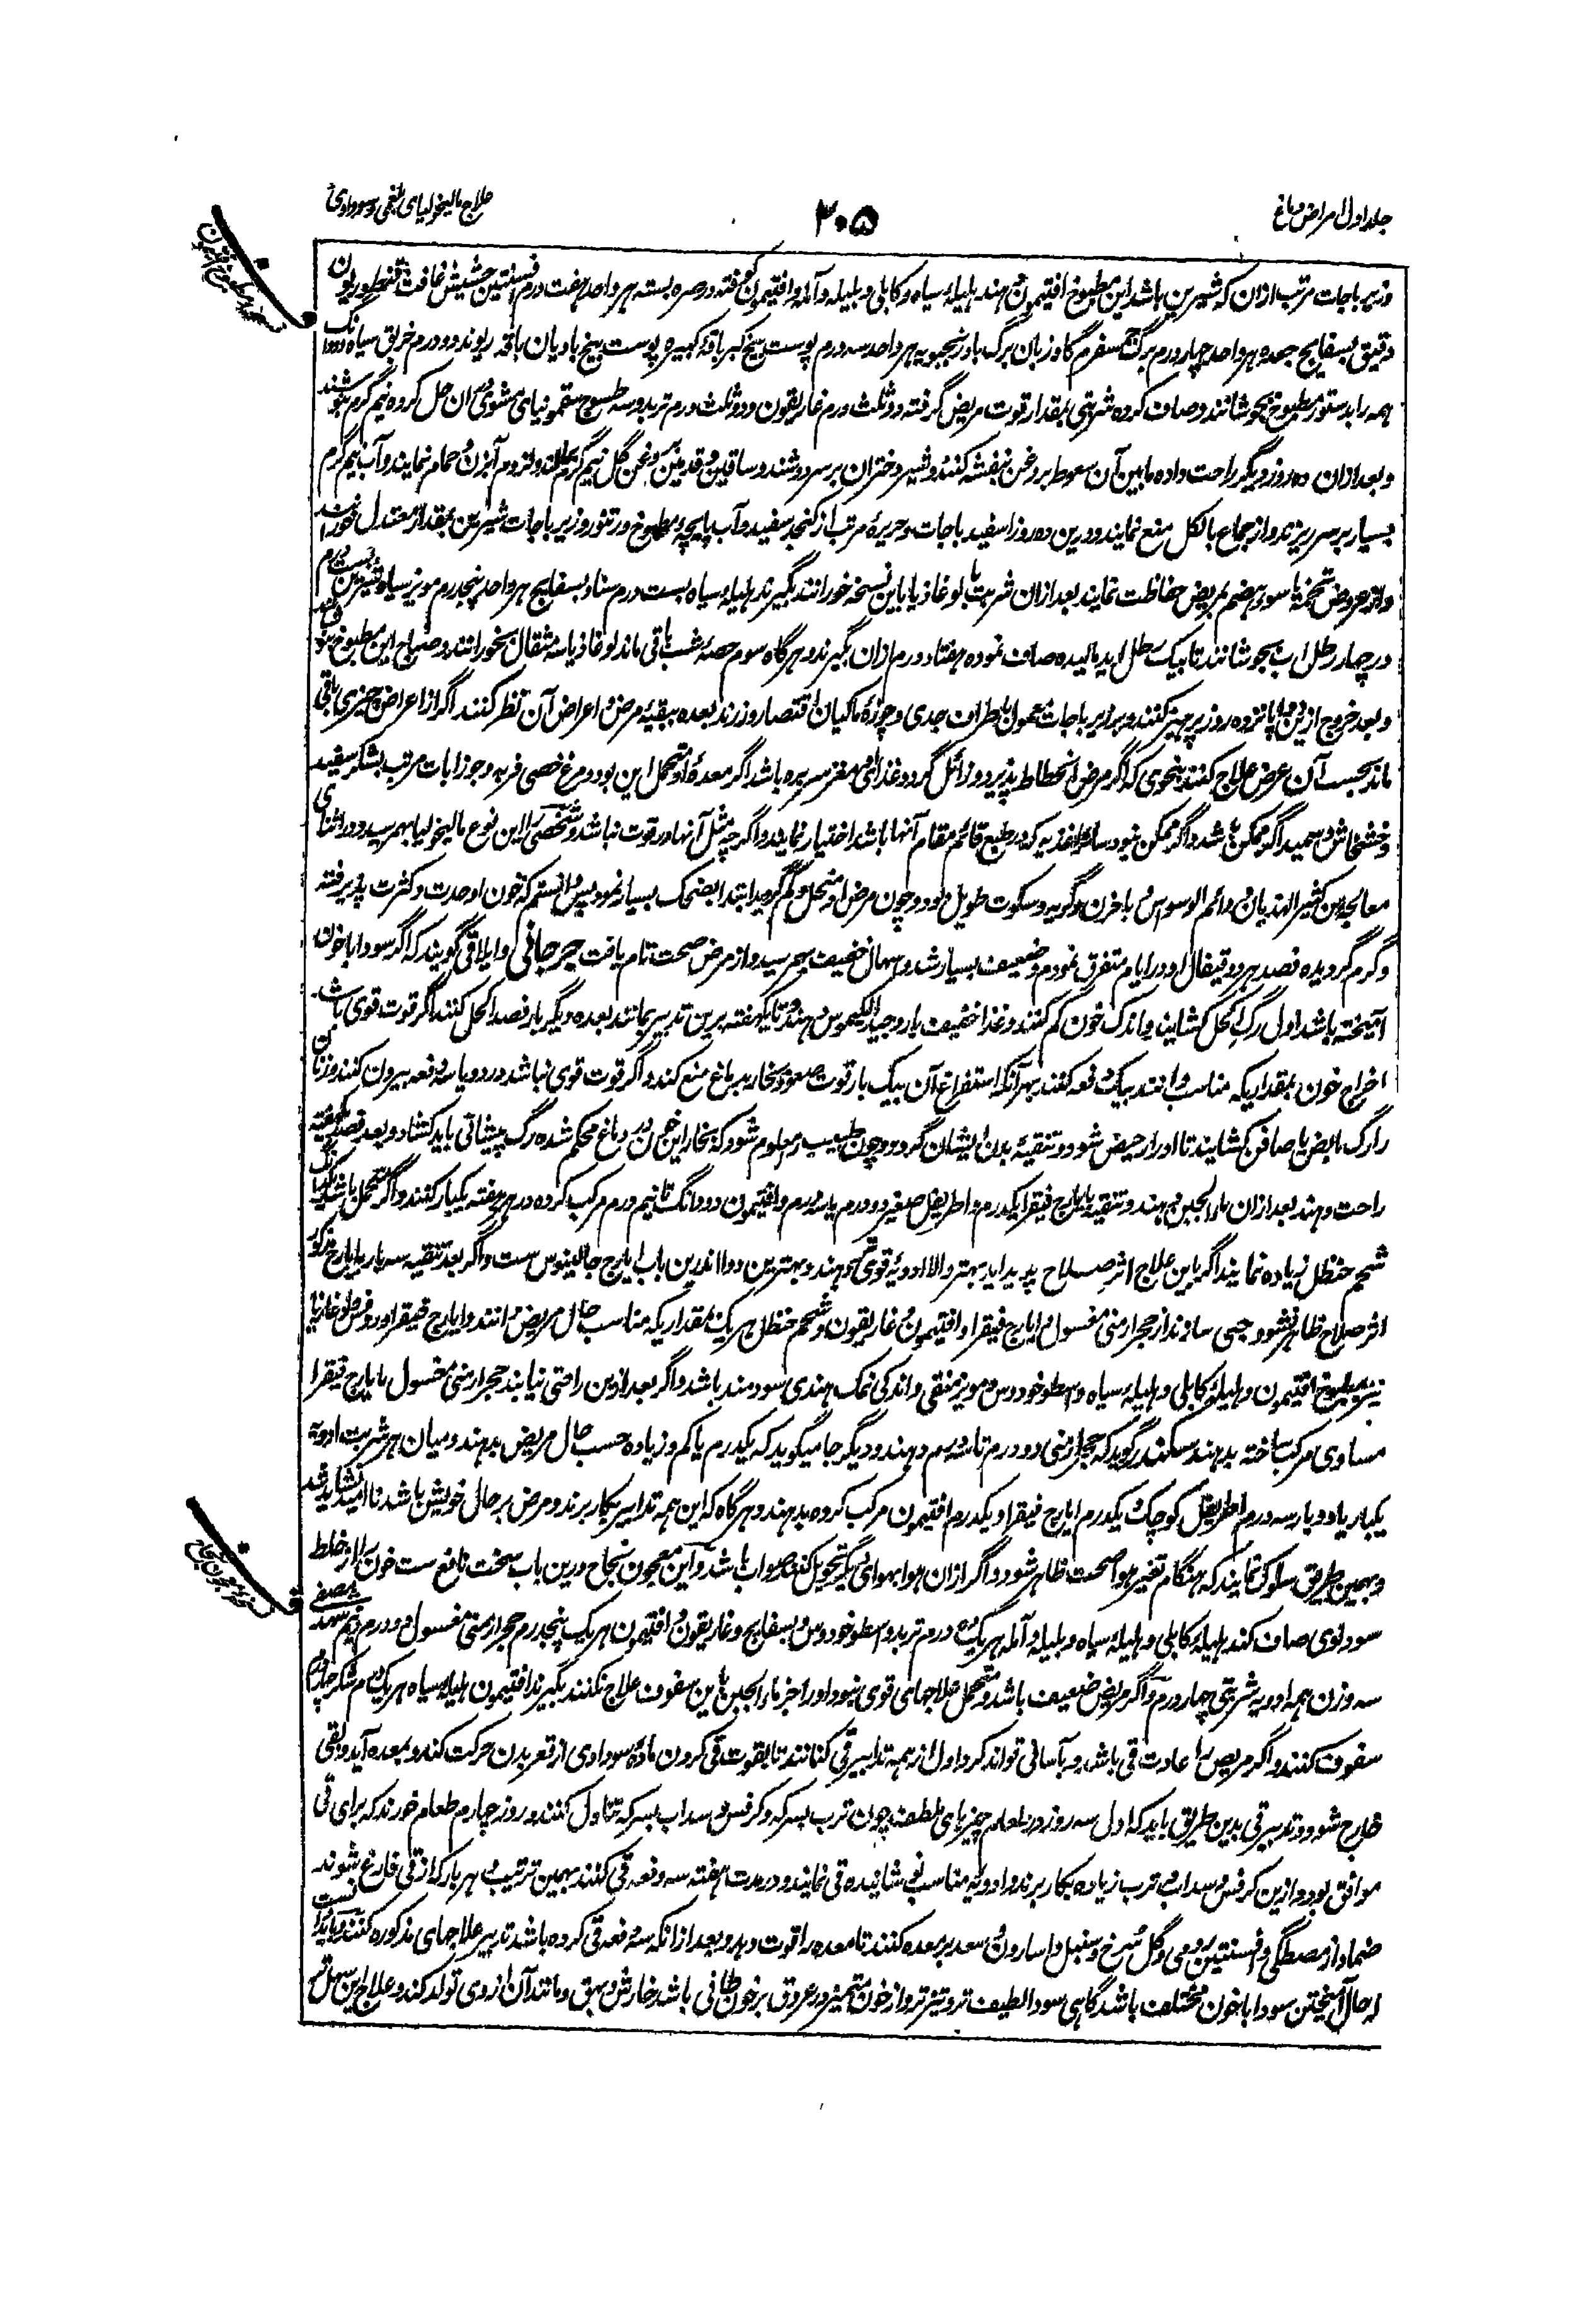 جلد اول امراض دماغ
۳۰۵
علاج مالیخولیای بلغمی و سوداوی
وزیرباجات مرتب ازان که شیرین باشد این مطبوخ افتیمون دهند هلیله سیاه و کابلی و بلیله و آمله و افتیمون کوفته در صره بسته هر واحد هفت درم افسنتین حشیش غافث قنطوریون
دقیق بسفایج جعده هر واحد چهار درم برگ سفرم گاوزبان برگ بادرنجبویه هر واحد سه درم پوست بیخ کبر باقه کبیره پوست بیخ بادیان باقه ریوند دو درم خربق سیاه
همه را بدستور مطبوخ بجوشانند و صاف کرده شربتی بمقدار قوت مریض گرفته دو ثلث درم غاریقون و دو ثلث درم تربد و سه طسوج سقمونیای مشوی دران حل کرده نیم گرم بنوشند
و بعد ازان ده روز دیگر راحت داده مابین آن سعوط بروغن بنفشه کنند و شیر دختران بر سر دوشند و ساقین و قدمین بروغن گل نیم گرم بمالند و لزوم آبزن و حمام نمایند و آب نیم گرم
بسیار بر سر ریزند و از جماع بالکل منع نمایند و درین ده روز اسفیدباجات و حریره مرتب از کنجد سفید و آب پایچه مطبوخ در تنور و زیرباجات شیرین بمقدار معتدل خورانند
و از عروض تخمه یا سوء هضم بمریض حفاظت نمایند بعد ازان شربت با لوغاذیا باین نسخه خورانند بگیرند هلیله سیاه بست درم سنا و بسفایج هر واحد پنجدرم مویز سیاه
در چهار رطل آب بجوشانند تا بیک رطل آید مالیده صاف نموده هفتاد درم ازان بگیرند و هرگاه سوم حصه شب باقی ماند لوغاذیا سه مثقال بخورانند و صباح این مطبوخ
و بعد خروج ازین دوا پانزده روز پرهیز کنند و بر زیرباجات معمول باطراف جدی و چوزه ماکیان اقتصار ورزند بعده ببقیه مرض و اعراض آن نظر کنند اگر از اعراض چیزی باقی
ماند بحسب آن عرض علاج کنند بنحوی که اگر مرض انحطاط پذیرد و زائل گردد غذای او مغز سر بره باشد اگر معده او متحمل این بود و مرغ خصی فربه و جوزابات مرتب بشکر سفید
و خشخاش و سمید اگر ممکن باشد و اگر ممکن نبود سائر اغذیه که در طبع قائم مقام آنها باشد اختیار نمایند و اگرچه مثل آنها در قوت نباشد و شخصی را این نوع مالیخولیا بهم رسید و در اثنای
معالجه من کثیر الهذیان و دائم الوسواس و باحزن و گریه و سکوت طویل بود و چون مرض او منحل و کم گردید ابتدا بضحک بسیار نمود پس دانستم که خون او حدت و کثرت پذیرفته
و گرم گردیده فصد هر دو قیفال او در ایام متفرق نمودم و ضعیف بسیار شد و اسهال خفیف بهم رسید و از مرض صحت تام یافت جرجانی و ایلاقی گویند که اگر سودا با خون
آمیخته باشد اول رگ اکحل کشایند و اندک خون کم کنند و غذا خفیف بارد جید الکیموس دهند و تا یکهفته برین تدبیر بمانند بعده دیگر بار فصد اکحل کنند اگر قوت قوی باشد
اخراج خون بمقداریکه مناسب دانند بیک دفعه کنند بهر آنکه استفراغ آن بیک بار قوت صعود بخار بدماغ منع کند و اگر قوت قوی نباشد در دو یا سه دفعه بیرون کنند و زنان
را رگ مابض یا صافن کشایند تا ادرار حیض شود و تنقیه بدن ایشان گردد و چون طبیب را معلوم شود که بخار این خون در دماغ محکم شده رگ پیشانی باید کشاد و بعد فصد یکهفته
راحت دهند بعد ازان ماءالجبن دهند و تنقیه بایارج فیقرا یکدرم و اطریفل صغیر دو درم یا سه درم و افتیمون دو دانگ تا نیم درم مرکب کرده در هر هفته یکبار کنند و اگر متحمل باشد
شحم حنظل زیاده نمایند اگر باین علاج اثر صلاح پدید آید بهتر والا ادویه قوی تر دهند و بهترین دوا اندرین باب ایارج جالینوس ست و اگر بعد تنقیه سه بار بایارج مذکور
اثر صلاح ظاهر نشود حبی سازند از حجر ارمنی مغسول و ایارج فیقرا و افتیمون و غاریقون و شحم حنظل هریک بمقداریکه مناسب حال مریض دانند و ایارج فیقرا و روفس و لوغاذیا
نیز و مطبوخ افتیمون و هلیله کابلی و هلیله سیاه و اسطوخودوس و مویز منقی و اندکی نمک هندی سودمند باشد و اگر بعد ازین راحتی نیابند حجر ارمنی مغسول با ایارج فیقرا
مساوی مرکب ساخته بدهند سکندر گوید که حجر ارمنی دو درم تا سه درم دهند و دیگر جا میگوید که یکدرم یا کم و زیاده حسب حال مریض بدهند و میان هر شربت ادویه
یکبار یا دو بار سه درم اطریفل کوچک و یکدرم ایارج فیقرا و یکدرم افتیمون مرکب کرده بدهند و هرگاه که این همه تدابیر بکار برند و مرض بر حال خویش باشد ناامید نشاید شد
و بهمین طریق سلوک نمایند که هنگام تغیر هوا صحت ظاهر شود و اگر ازان هوا بهوای دیگر تحویل کنند صواب باشد و این معجون نجاح درین باب سخت نافع ست خون را از خلط
سوداوی صاف کند هلیله کابلی و هلیله سیاه و بلیله و آمله هریک ده درم تربد و اسطوخودوس و بسفایج و غاریقون و افتیمون هریک پنجدرم حجر ارمنی مغسول دو درم و نیم شهد مصفی
سه وزن همه ادویه شربتی چهار درم و اگر مریض ضعیف باشد و متحمل علاجهای قوی نبود او را جز ماءالجبن باین سفوف علاج نکنند بگیرند افتیمون هلیله سیاه هریک درم شکر چهار درم
سفوف کنند و اگر مریض را عادت قی باشد و بآسانی تواند کرد اول از همه تدابیر قی کنانند تا بقوت قی کردن ماده سوداوی از قعر بدن حرکت کند و بمعده آید و بقی
خارج شود و تدبیر قی بدین طریق باید که اول سه روز در طعام چیزهای ملطف چون ترب بسرکه و کرفس و سداب بسرکه تناول کنند و روز چهارم طعام خورند که برای قی
موافق بود و ازین کرفس و سداب و ترب زیاده بکار برند و ادویه مناسب قی نوشانیده قی نمایند و در مدت هفته سه دفعه قی کنند بهمین ترتیب و هر بار که از قی فارغ شوند
ضماد از مصطگی و افسنتین رومی و گل سرخ و سنبل و اسارون و سعد بر معده کنند تا معده را قوت دهد و بعد ازانکه سه دفعه قی کرده باشد تدبیر علاجهای مذکوره کنند و باید دانست
که حال آمیختن سودا با خون مختلف باشد گاهی سودا لطیف تر و تیزتر و از خون متمیز در عروق بر خون طافی باشد خارش و بهق و مانند آن ازوی تولد کند و علاج این سهل تر